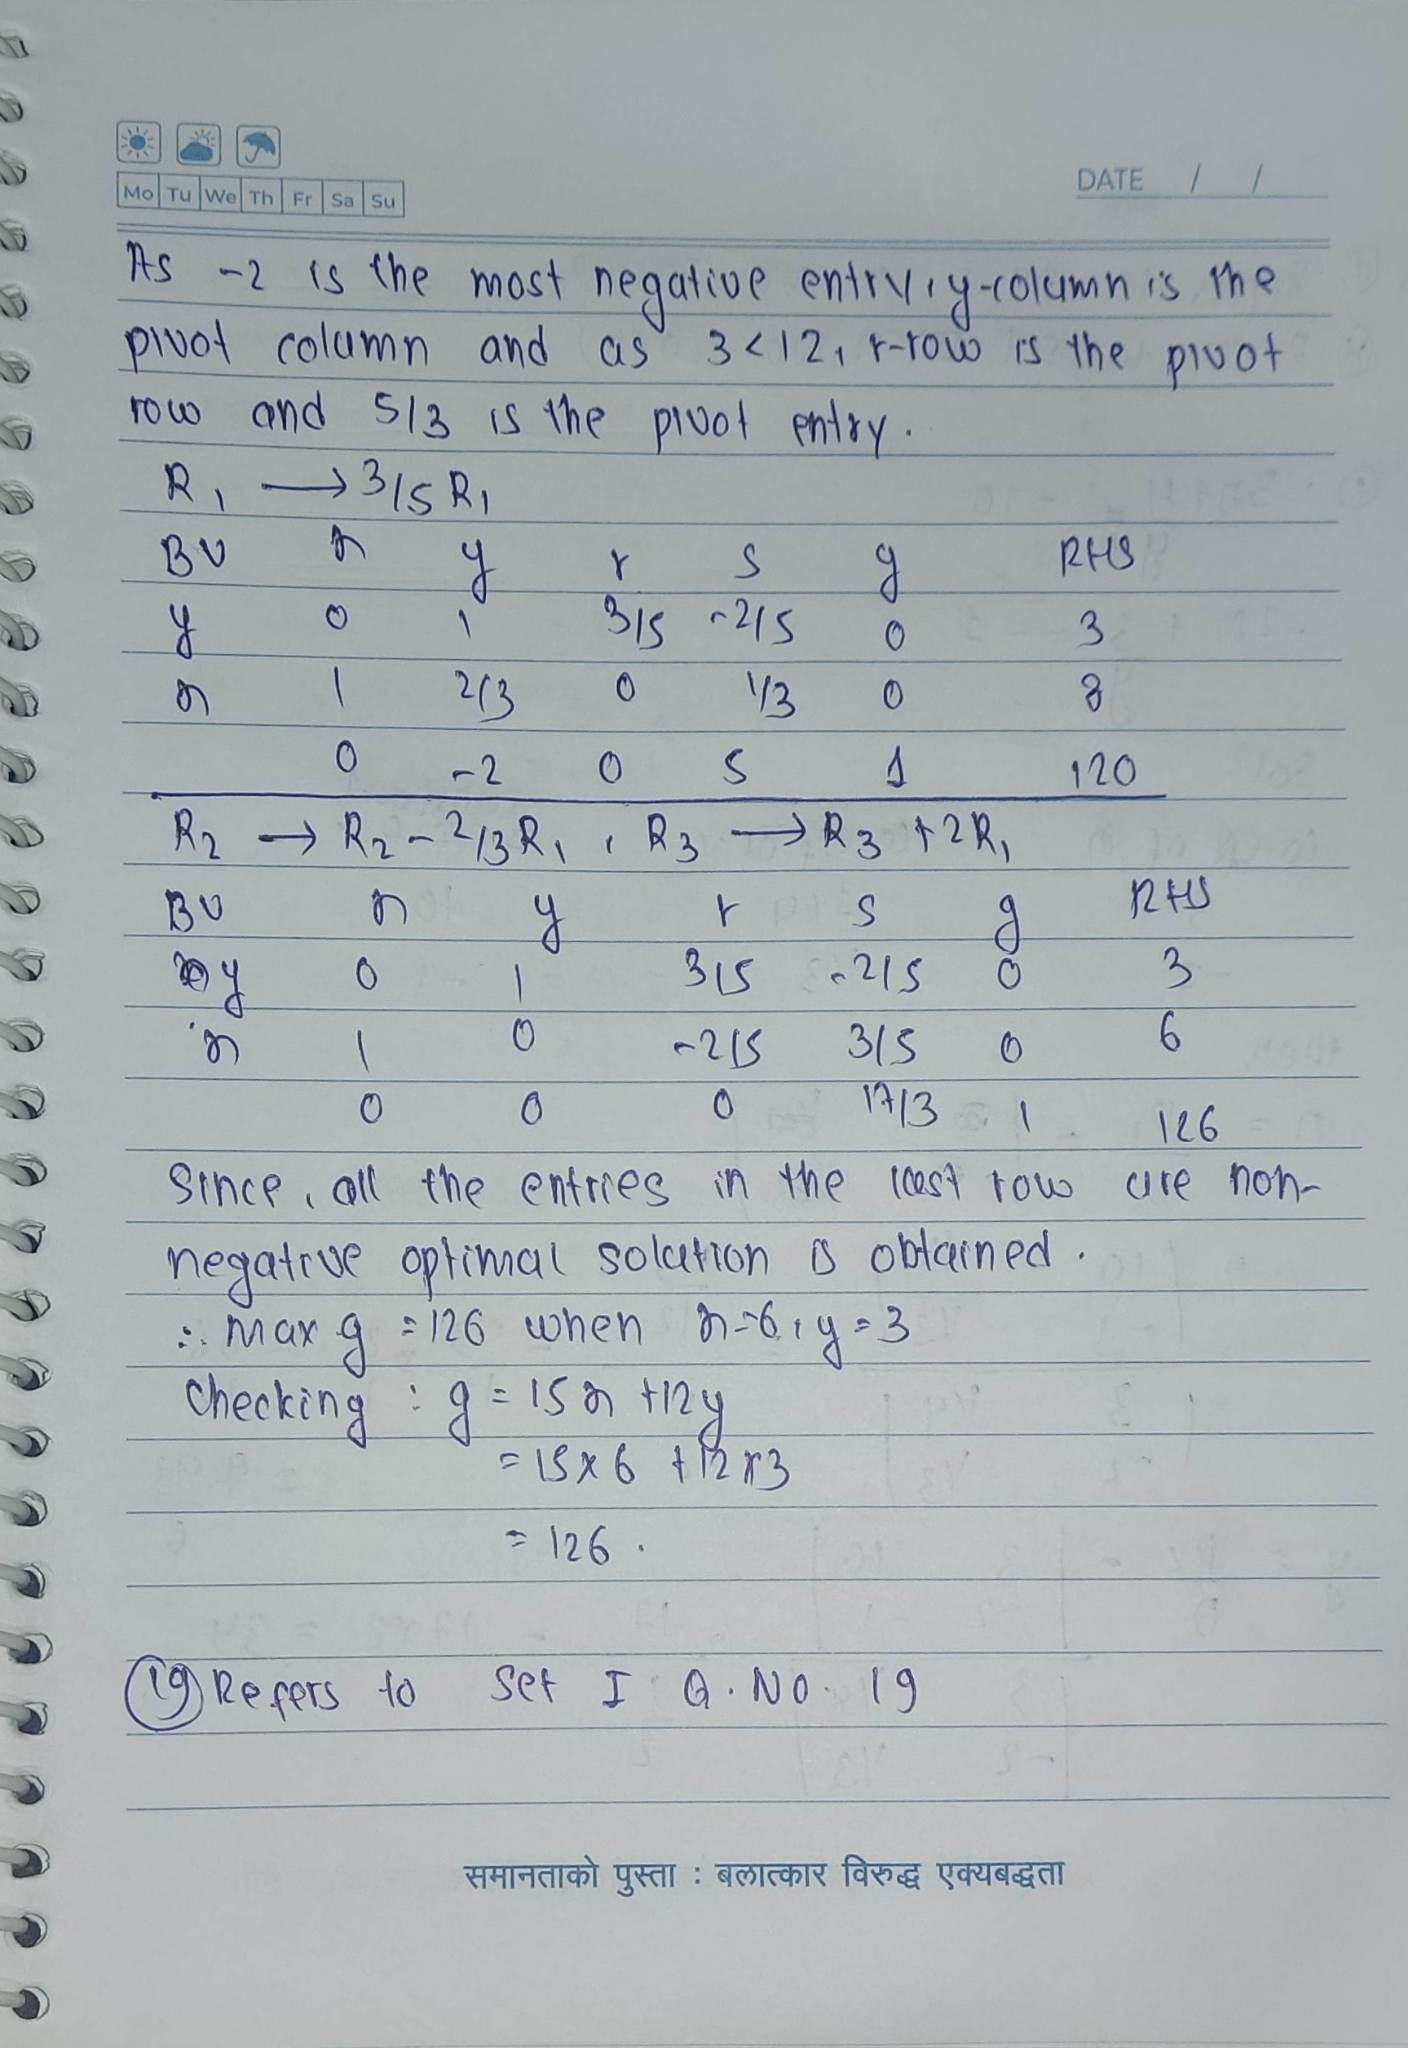 Mo Tu We Th Fr Sa Su
DATE / /
As -2 is the most negative entry, y-column is the
pivot column and as 3<12, r-row is the pivot
row and 5/3 is the pivot entry.
R₁ → 3/5 R₁
BV x y r s g RHS
y 0 1 3/5 -2/5 0 3
x 1 2/3 0 1/3 0 8
0 -2 0 5 1 120
R₂ → R₂ - 2/3 R₁, R₃ → R₃ + 2R₁
BV x y r s g RHS
y 0 1 3/5 -2/5 0 3
x 1 0 -2/5 3/5 0 6
0 0 0 17/3 1 126
Since, all the entries in the last row are non-
negative optimal solution is obtained.
∴ Max g = 126 when x=6, y=3
Checking : g = 15x + 12y
= 15×6 + 12×3
= 126.
(19) Refers to Set I Q.NO. 19
समानताको पुस्ता : बलात्कार विरुद्ध एक्यबद्धता